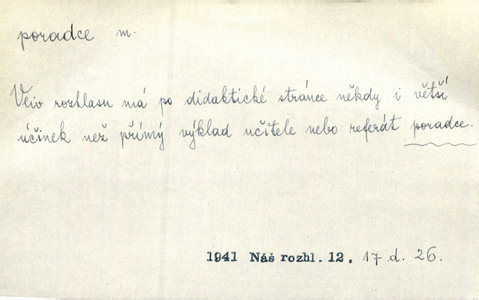 poradce m.
Vliv rozhlasu má po didaktické stránce někdy i větší
účinek než přímý výklad učitele nebo referát poradce.
1941 Náš rozhl. 12. 17 d. 26.